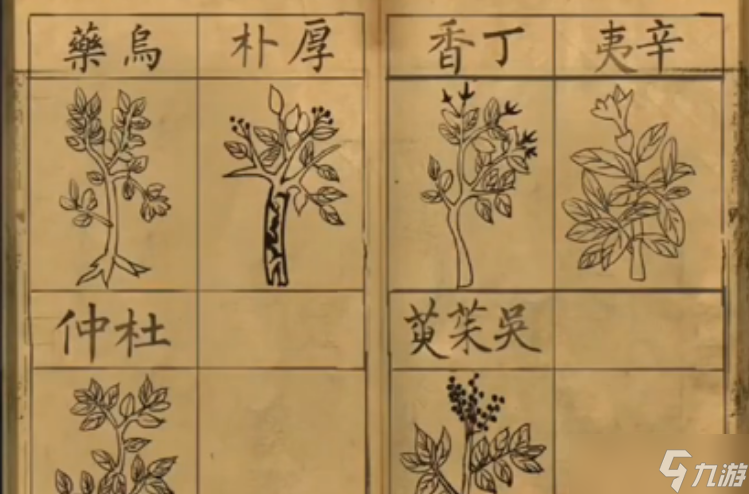 厚朴
烏藥
杜仲
辛夷
丁香
吳茱萸
九游